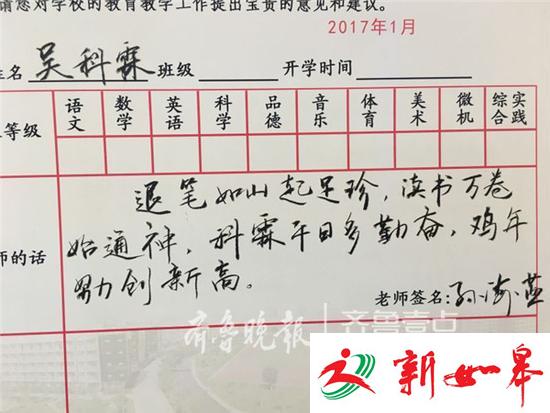 请您对学校的教育教学工作提出宝贵的意见和建议。
2017年1月
姓名 吴科霖 班级 开学时间
等级 语文 数学 英语 科学 品德 音乐 体育 美术 微机 综合实践
师的话
退笔如山起足珍,读书万卷
始通神,科霖平日多勤奋,鸡年
努力创新高。
老师签名:
齐鲁晚报 齐鲁壹点
新如皋